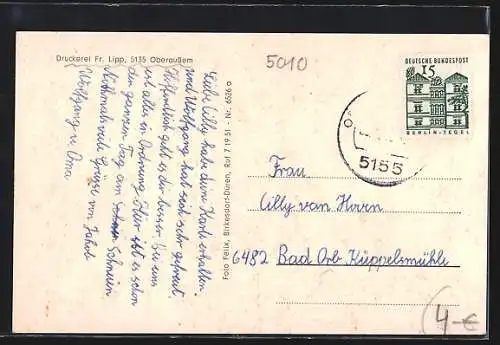 Druckerei Fr. Lipp, 5155 Oberaußem
5010
DEUTSCHE BUNDESPOST
15
BERLIN-TEGEL
5155
Liebe Cilly habe deine Karte erhalten
und Wolfgang hat sich sehr gefreut
Hoffentlich geht es dir besser bei uns
ist alles in Ordnung. Hier ist es schon
den ganzen Tag am
Nochmals viele Grüsse von Jakob
Wolfgang u. Oma
Foto Felix, Birkesdorf-Düren, Ruf 71951 - Nr. 6526 o
Frau
Cilly van Horn
6482 Bad Orb Küppelsmühle
4-€